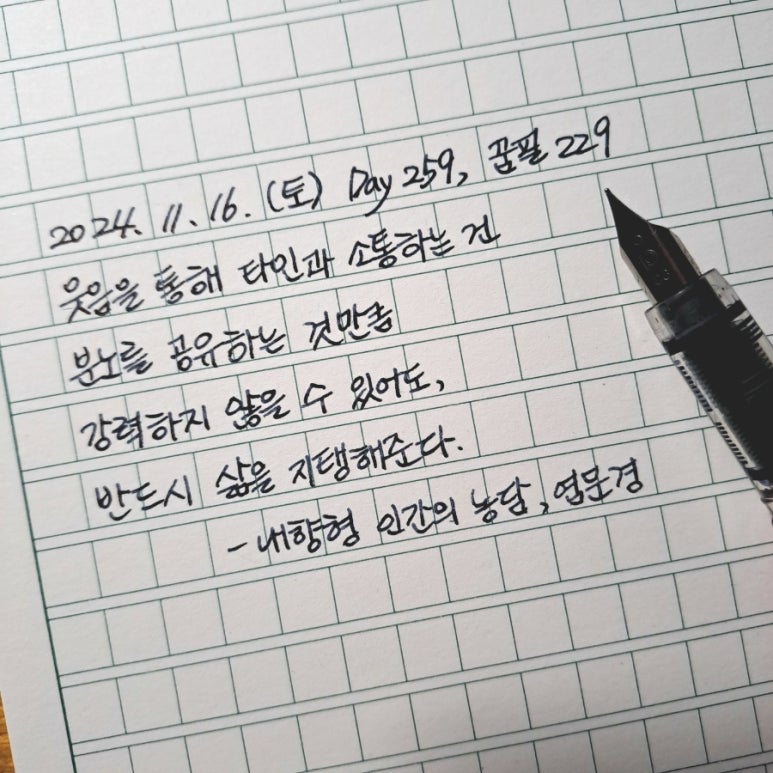 2024. 11. 16. (토) Day 259, 꿈필 229
웃음을 통해 타인과 소통하는 건
분노를 공유하는 것만큼
강력하지 않을 수 있어도,
반드시 삶을 지탱해준다.
- 내향형 인간의 농담, 염문경